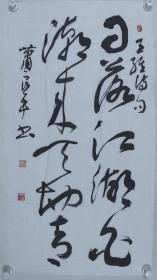 日落江湖白
潮来天地青
王维诗句
萧平书